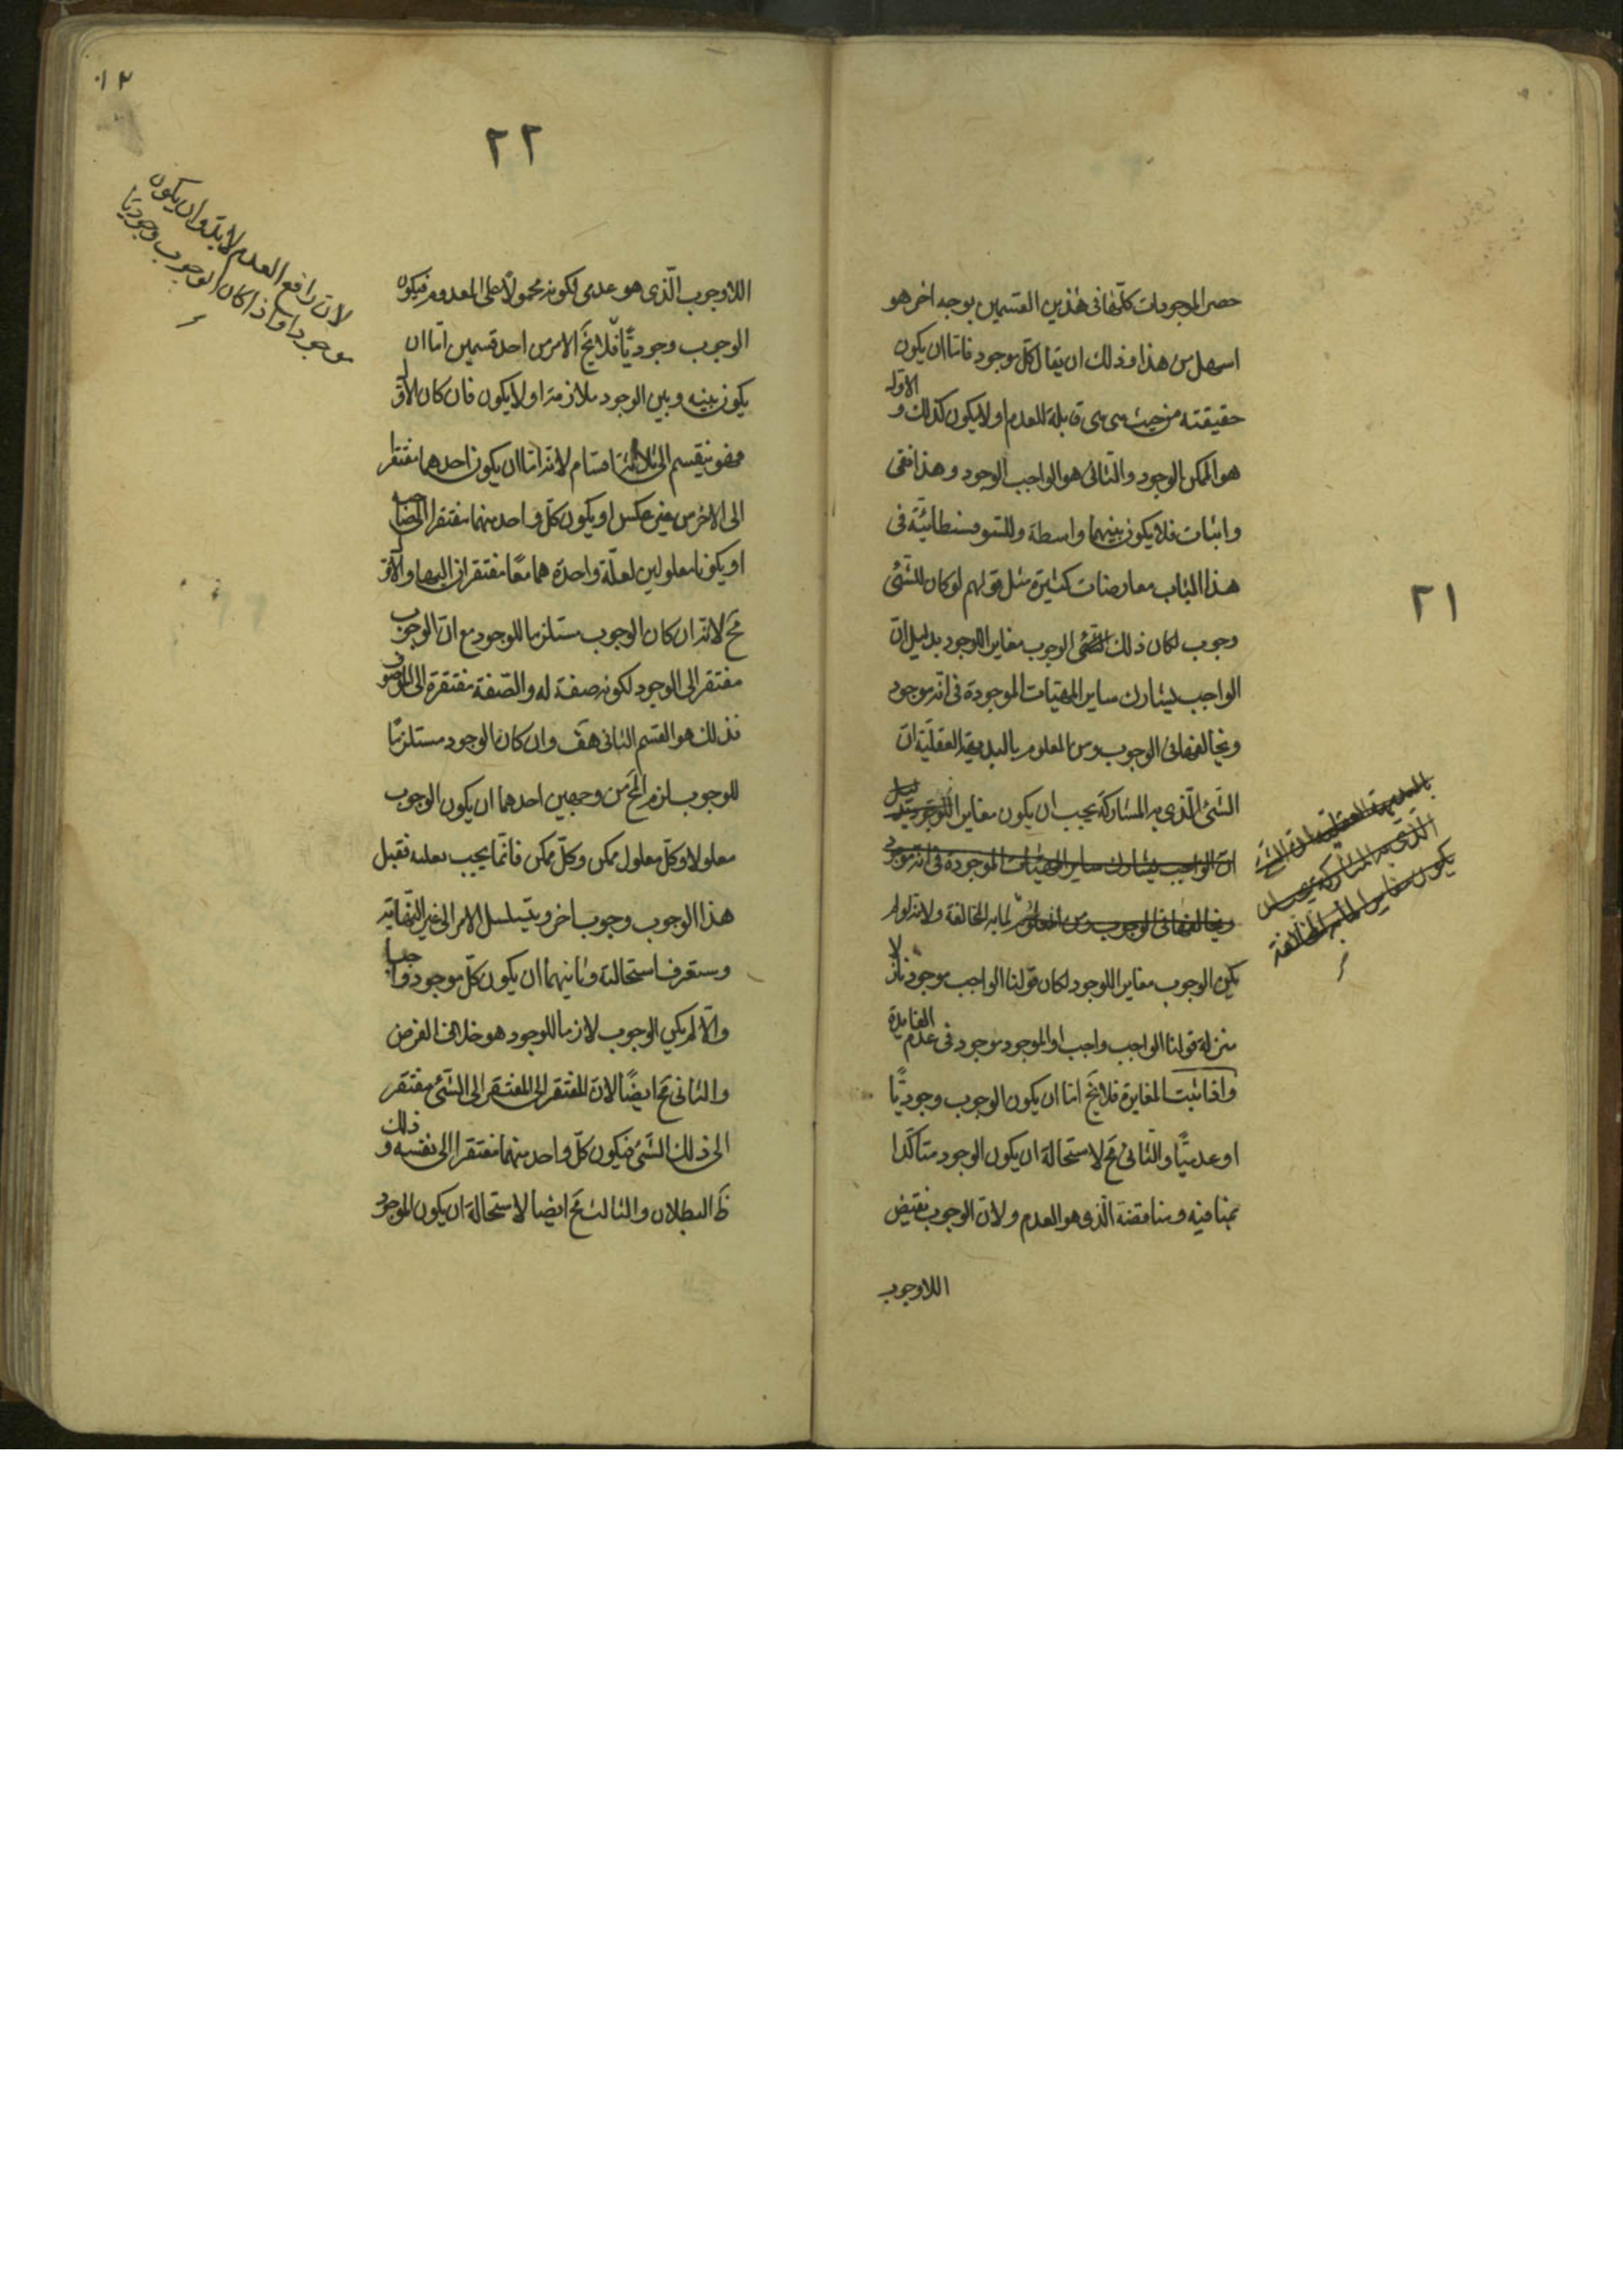 ٢١
حصر الموجودات كلّها فى هذين القسمين بوجه اخر هو
اسهل من هذا وذلك ان يقال كلّ موجود فامّا ان يكون
حقيقته من حيث هى هى قابلة للعدم اولا يكون كذلك والاوّل
هو الممكن الوجود والثانى هو الواجب الوجود وهذا نفى
واثبات فلا يكون بينهما واسطة وللسّوفسطائيّة فى
هذا الباب معارضات كثيرة مثل قولهم لو كان للشّئ
وجوب لكان ذلك الوجوب مغايرا للوجود بدليل انّ
الواجب يشارك ساير المهيّات الموجودة فى انّه موجود
ويخالفها فى الوجوب ومن المعلوم بالبديهة العقليّة انّ
الشّئ الّذى به المشاركة يجب ان يكون مغايرا للوجود بدليل
انّ الواجب يشارك ساير المهيّات الموجودة فى انّه موجود
ويخالفها فى الوجوب ومن المعلوم لما به المخالفة ولانّه لو لم
يكن الوجوب مغايرا للوجود لكان قولنا الواجب موجود نازلا
منزلة قولنا الواجب واجب او الموجود موجود فى عدم الفايدة
واذا ثبت المغايرة فلا يخ امّا ان يكون الوجوب وجوديًّا
او عدميًّا والثّانى مح لاستحالة ان يكون الوجود متأكّدا
بمنافيه ومناقضه الّذى هو العدم ولانّ الوجوب نقيض
اللاوجوب
بالبديهة العقلية ان الشئ
الّذى به المشاركة يجب ان
يكون مغايرا لما به المخالفة
١٢
٢٢
لانّ رافع العدم لا بدّ وان يكون
موجودا واذا كان الوجوب وجوديّا
اللاوجوب الّذى هو عدمى لكونه محمولاً على المعدوم فيكون
الوجوب وجوديًّا فلا يخ الامر من احد قسمين امّا ان
يكون بينه وبين الوجود ملازمة اولا يكون فان كان الاوّل
فهو ينقسم الى ثلاثة اقسام لانّه امّا ان يكون احدهما مفتقرا
الى الاخر من غير عكس او يكون كلّ واحد منهما مفتقرا الى صاحبه
او يكونا معلولين لعلّة واحدة هما معًا مفتقران اليها والاوّل
مح لانّه ان كان الوجوب مستلزما للوجود مع انّ الوجوب
مفتقر الى الوجود لكونه صفة له والصّفة مفتقرة الى الموصوف
فذلك هو القسم الثانى هف وان كان الوجود مستلزمًا
للوجوب لزم المح من وجهين احدهما ان يكون الوجوب
معلولا وكلّ معلول ممكن وكلّ ممكن فانّما يجب بعلته فقبل
هذا الوجوب وجوب اخر ويتسلسل الامر الى غير النّهاية
وستعرف استحالته وثانيهما ان يكون كلّ موجود واجبا
والّا لم يكن الوجوب لازما للوجود هو خلاف الفرض
والثانى مح ايضًا لانّ المفتقر الى المفتقر الى الشّئ مفتقر
الى ذلك الشّئ فيكون كلّ واحد منهما مفتقرا الى نفسه وذلك
ظ البطلان والثالث مح ايضا لاستحالة ان يكون الموجود